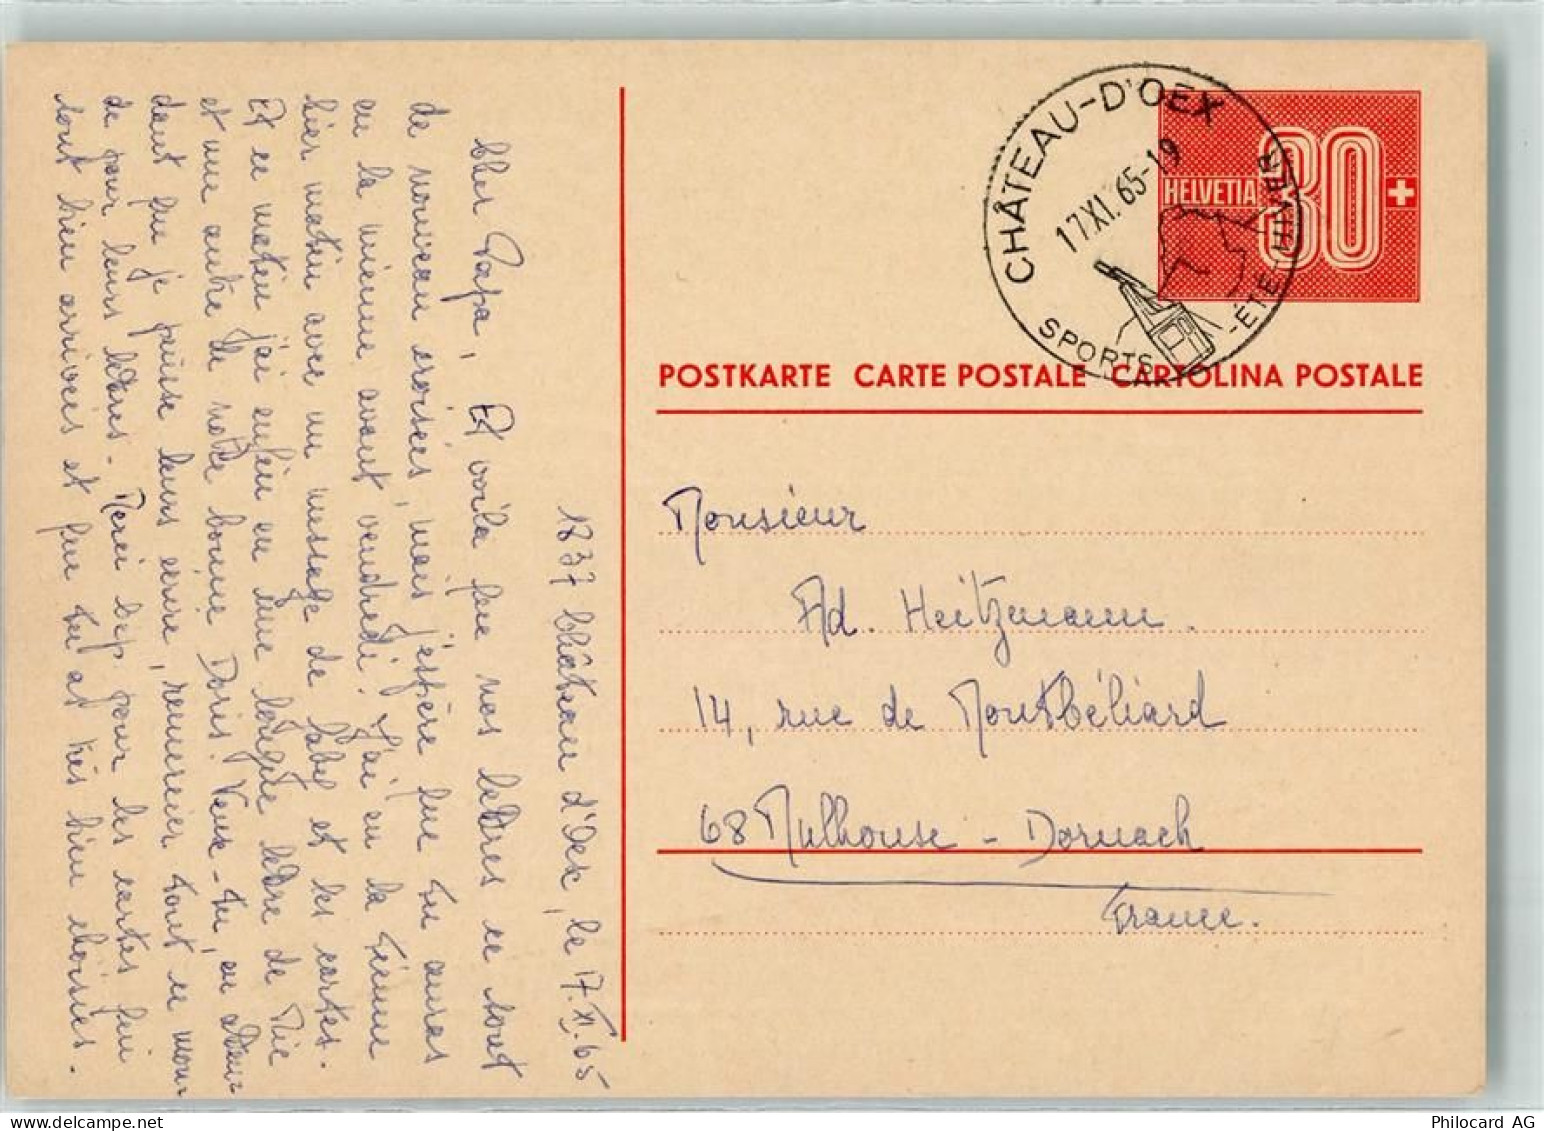 CHÂTEAU-D'OEX
17.XI.65-19
SPORTS -ÉTÉ-HIVER
HELVETIA 30
POSTKARTE CARTE POSTALE CARTOLINA POSTALE
Monsieur
Ad. Heitzmann.
14, rue de Montbéliard
68 Mulhouse - Dornach
France.
1837 Château d'Oex, le 17.XI.65
Cher Papa, Et voilà que nos lettres se sont
de nouveau croisées, mais j'espère que tu auras
eu la mienne avant vendredi. J'ai eu la tienne
hier matin avec un message de Babel et les cartes.
Et ce matin j'ai enfin eu une longue lettre de Mic
et une autre de notre bonne Doris. Veux-tu, en attendant
que je puisse leurs écrire, remercier tout ce monde
pour leurs lettres. Merci bcp pour les cartes qui
sont bien arrivées et que tu as très bien choisies.
Philocard AG